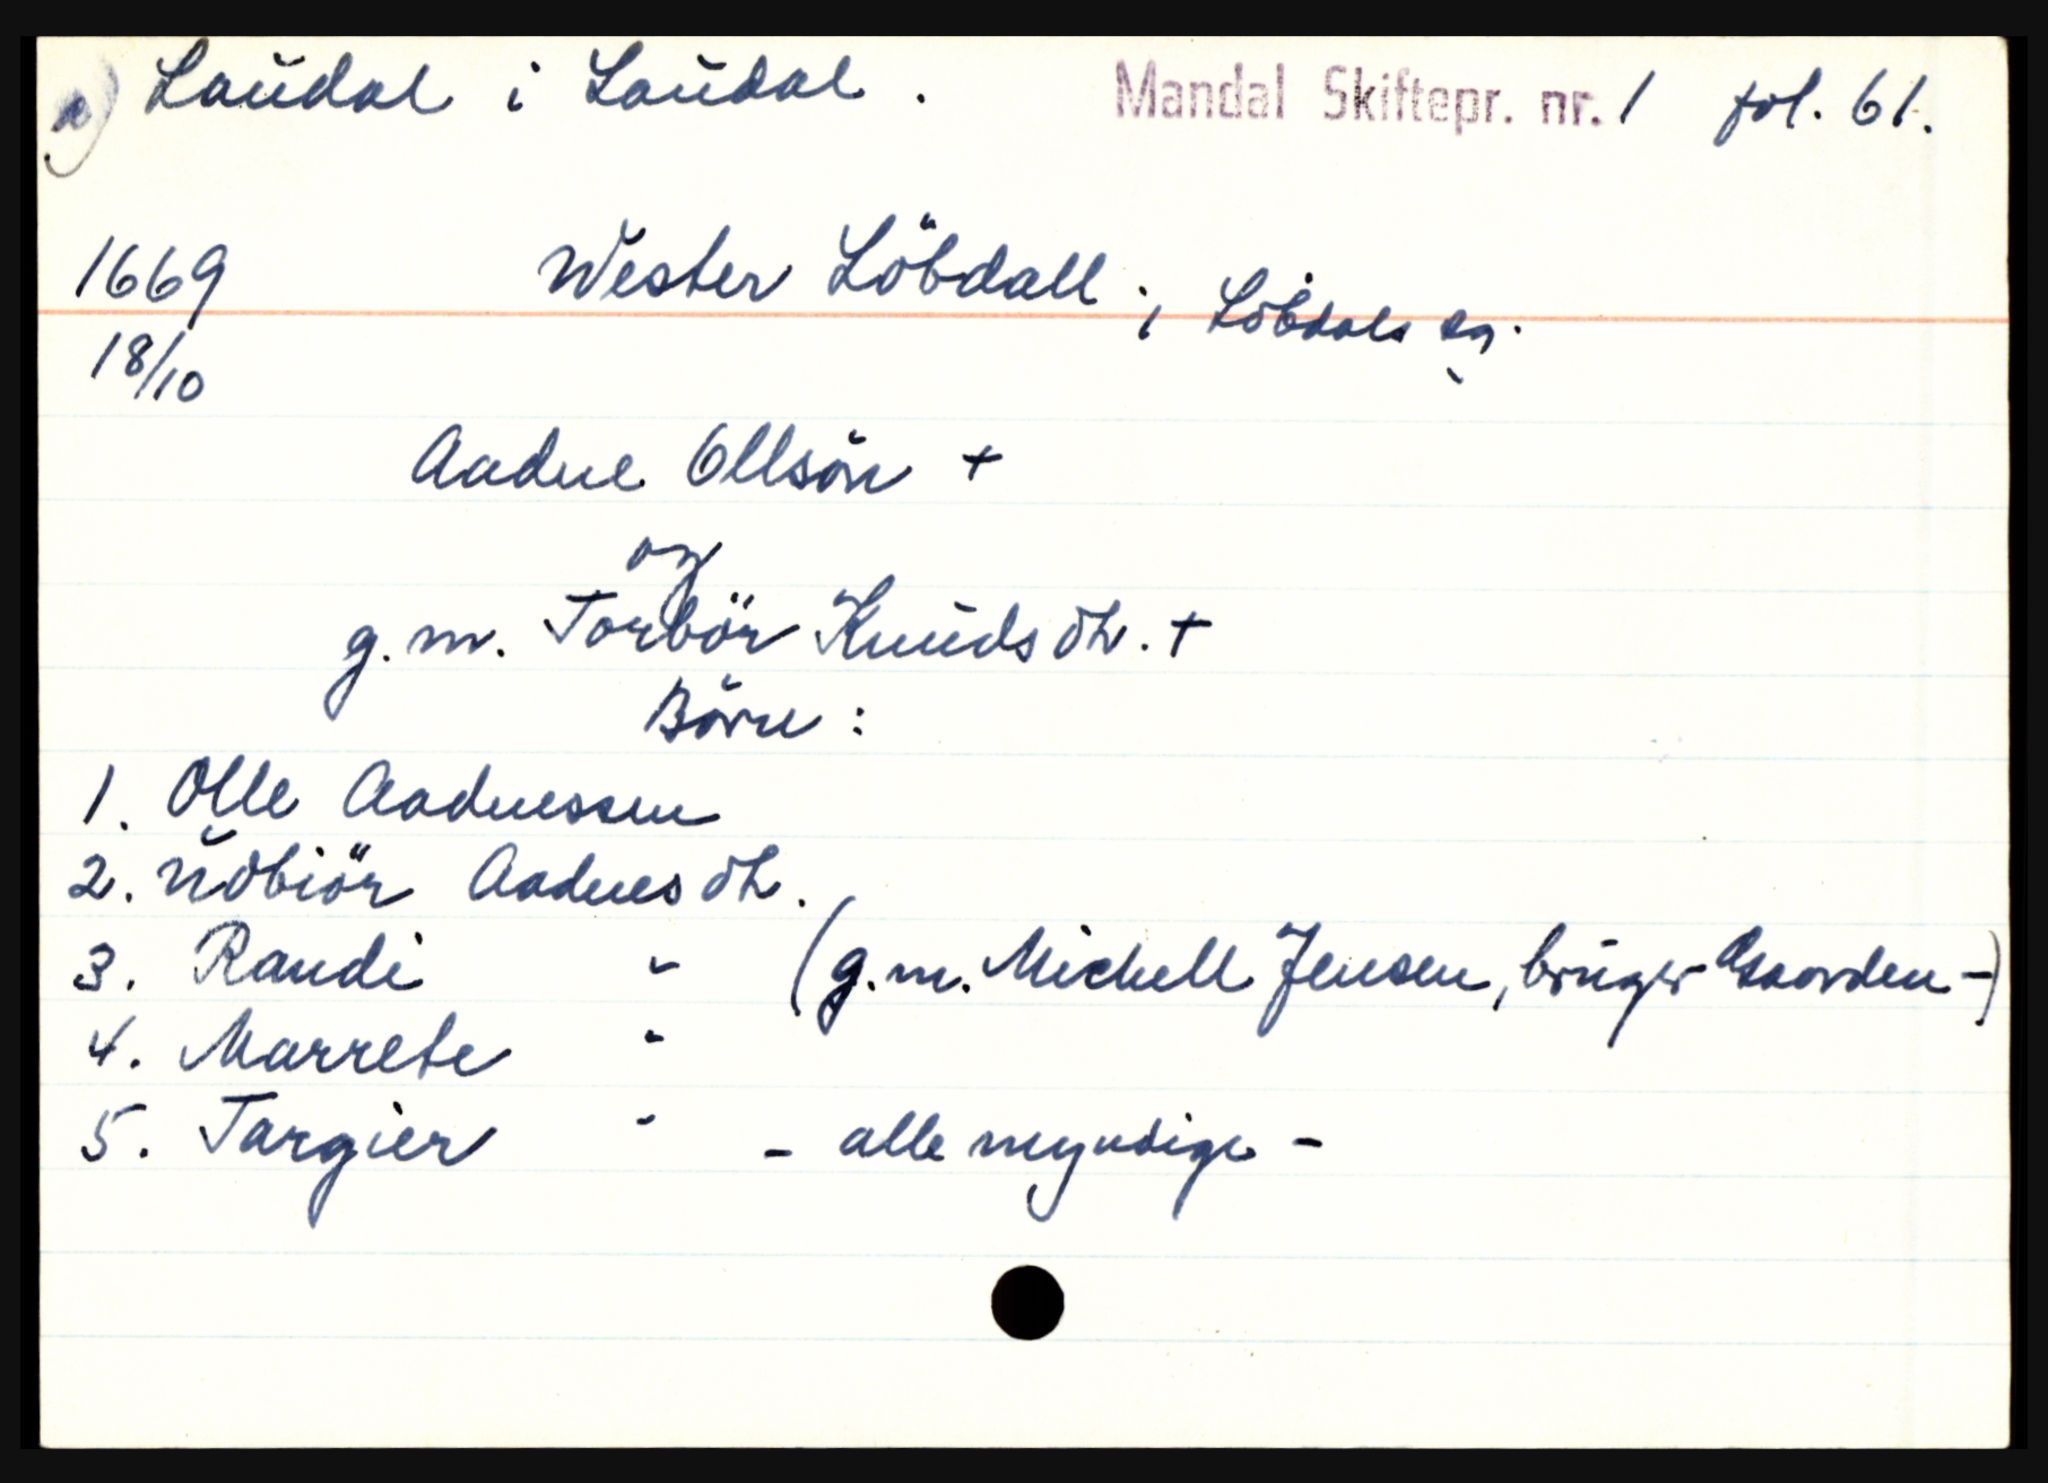 a) Laudal i Laudal. Mandal Skiftepr. nr. 1 fol. 61.
1669 Wester Löbdall i Löbdals sg.
18/10
Aadne Ollsön +
og
g. m. Torbör Knudsdtr. +
Börn:
1. Olle Aadnessen
2. Udbiör Aadnesdtr.
3. Randi " (g. m. Michell Jensen, bruger Gaarden -)
4. Marrete "
5. Targier " - alle myndige -